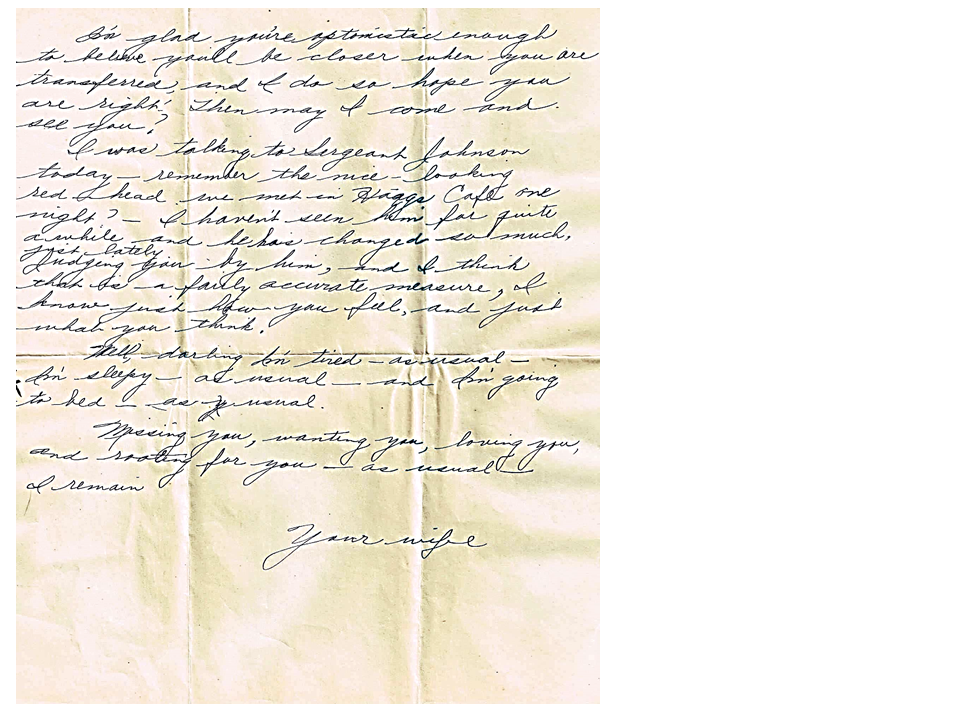 I'm glad you're optomistic enough
to believe you'll be closer when you are
transferred, and I do so hope you
are right! Then may I come and
see you?
I was talking to Sergeant Johnson
today — remember the nice-looking
red head we met in Haggs Café one
night? — I haven't seen him for quite
awhile and he has changed so much,
just lately
Judging you by him, and I think
that is a fairly accurate measure, I
know just how you feel, and just
what you think.
Well, darling I'm tired — as usual —
I'm sleepy — as usual — and I'm going
to bed — as usual.
Missing you, wanting you, loving you,
and rooting for you — as usual —
I remain
Your wife